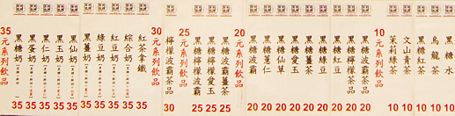 35元系列飲品
黑糖奶 35
黑蛋奶 35
黑仁奶 35
黑玉奶 35
黑仙奶 35
黑薑奶 35
綠豆奶 35
紅豆奶 35
綜合奶 35
紅茶拿鐵 35
30元系列飲品
檸檬波霸茶品 30
25元系列飲品
黑糖檸檬波霸 25
黑糖檸檬愛玉 25
黑糖波霸茶品 25
20元系列飲品
黑糖波霸 20
黑糖薏仁 20
黑糖仙草 20
黑糖愛玉 20
黑糖薑茶 20
黑糖綠豆 20
黑糖紅豆 20
黑糖檸檬 20
波霸茶品 20
檸檬茶品 20
10元系列飲品
茉莉綠茶 10
文山青茶 10
黑糖紅茶 10
烏龍茶 10
黑糖水 10